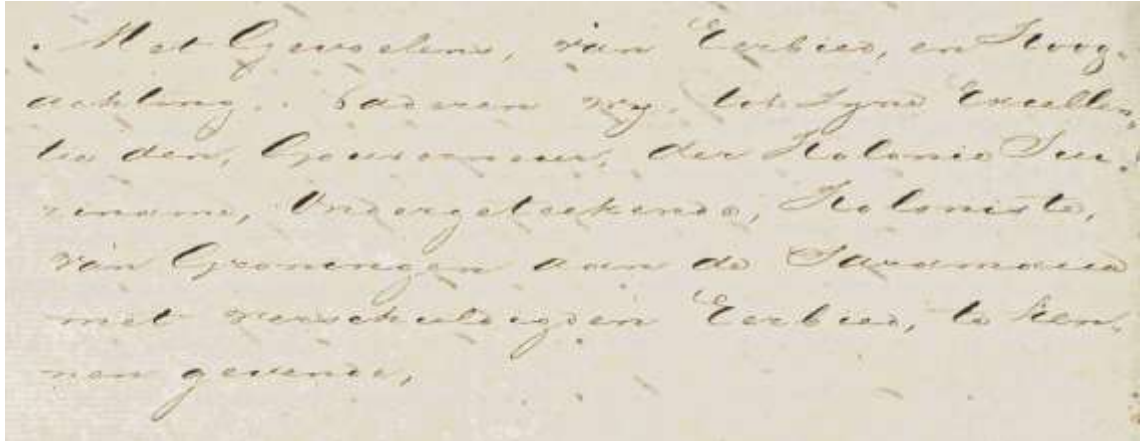 Met Gevoelens, van Eerbied, en Hoog-
achting.. naderen wy, tot Zyne Excellen,
tie den, Gouverneur, der Kolonie Su-
riname, Ondergeteekende, Koloniste,
van Groningen aan de Saramacca
met verschuldigden Eerbied, te ken,
nen gevende,